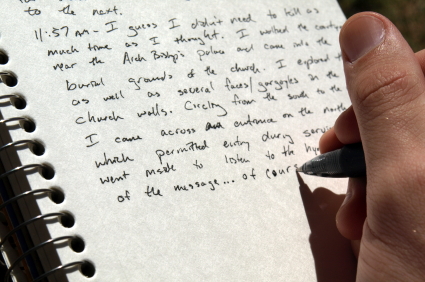 to the next.
11:57 am - I guess I didn't need to kill as
much time as I thought. I walked the country
near the Arch Bishop's palace and came into the
burial grounds of the church. I explored the
as well as several faces/gargoyles in the
church walls. Circling from the south to the
I came across an entrance on the north
which permitted entry during serv
went inside to listen to the hym
of the message... of cours